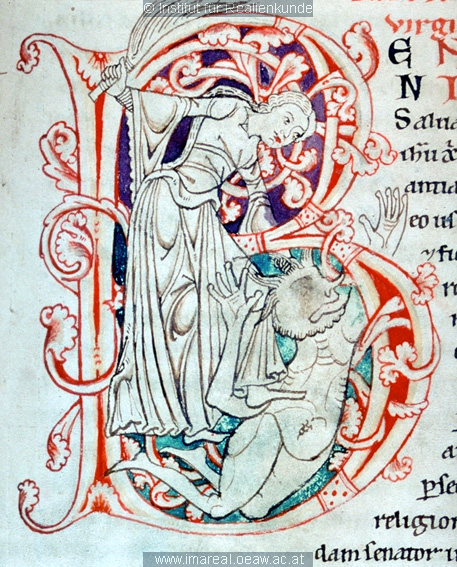 © Institut für Realienkunde
virgi
B E N
N I
Salua
antia
eo us
y fu
re
r
e
a
pse
religion
dam senator i
www.imareal.oeaw.ac.at